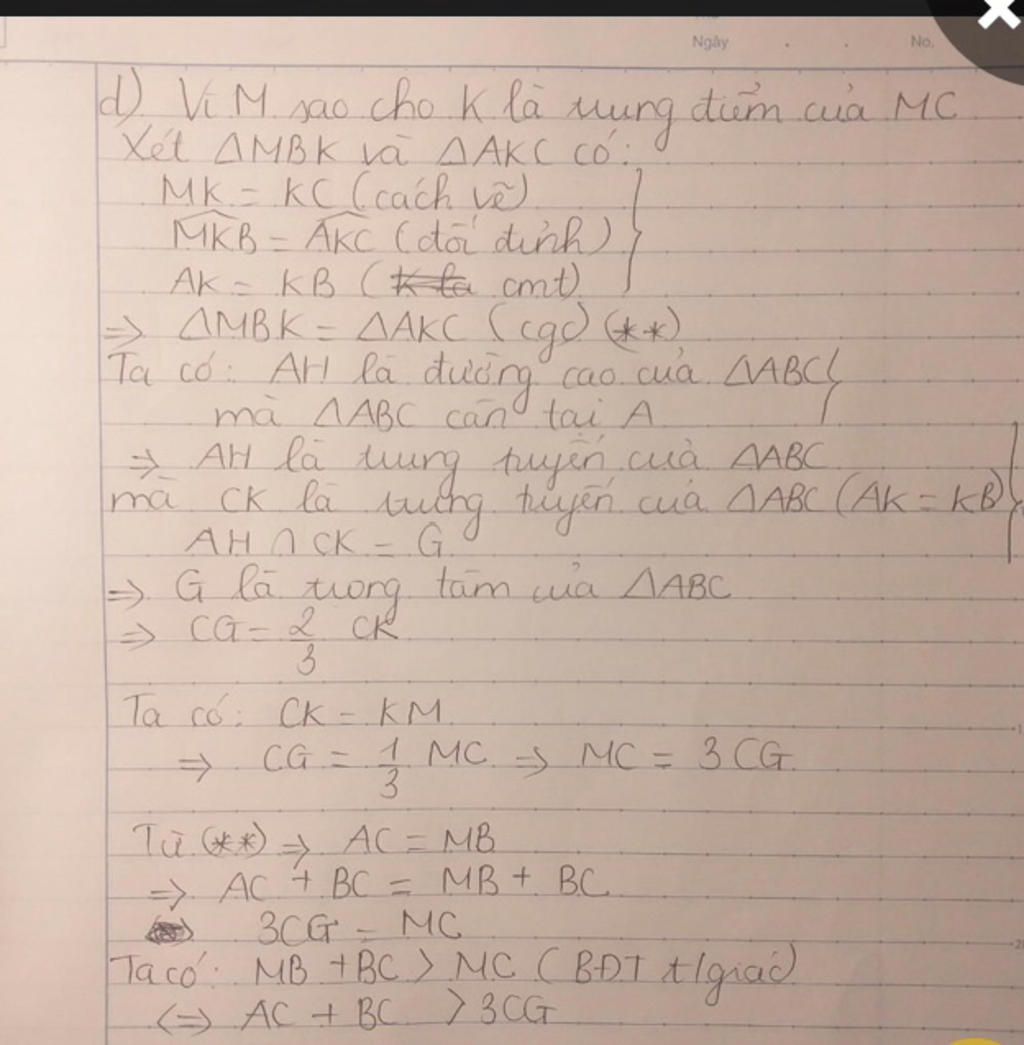 Ngày . . No.
d) Vì M sao cho K là trung điểm của MC
Xét ΔMBK và ΔAKC có:
MK = KC (cách vẽ)
MKB = AKC (đối đỉnh)
AK = KB ( cmt)
=> ΔMBK = ΔAKC (cgc) (**)
Ta có: AH là đường cao của ΔABC
mà ΔABC cân tại A
=> AH là trung tuyến của ΔABC
mà CK là trung tuyến của ΔABC (AK = KB)
AH ∩ CK = G
=> G là trong tâm của ΔABC
=> CG = 2/3 CK
Ta có: CK = KM
=> CG = 1/3 MC => MC = 3CG
Từ (**) => AC = MB
=> AC + BC = MB + BC
3CG = MC
Ta có: MB + BC > MC (BĐT t/giác)
<=> AC + BC > 3CG